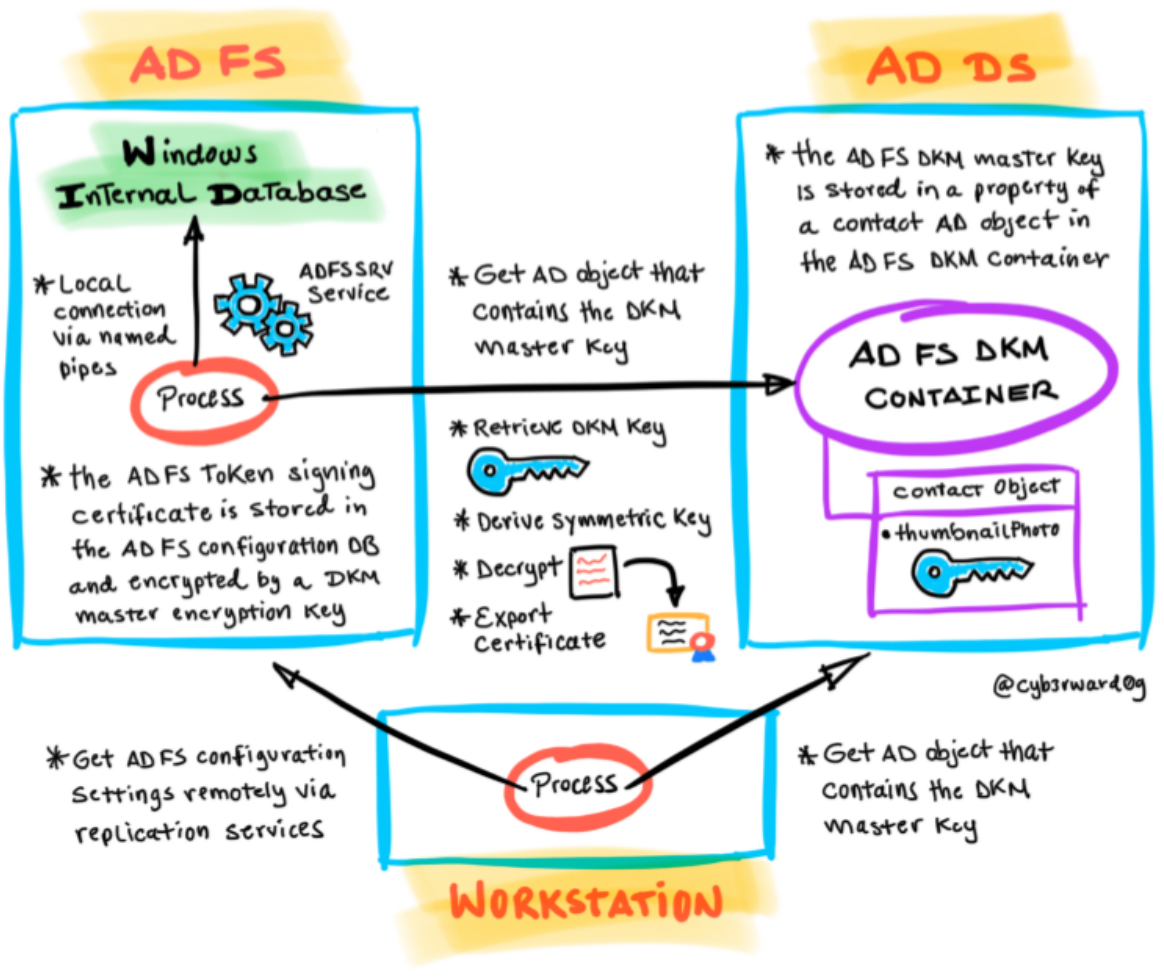 AD FS
AD DS
Windows
Internal Database
* Local
connection
via named
pipes
ADFSSRV
Service
Process
* the AD FS Token signing
certificate is stored in
the AD FS configuration DB
and encrypted by a DKM
master encryption key
* Get AD object that
contains the DKM
master key
* Retrieve DKM Key
* Derive symmetric Key
* Decrypt
* Export
certificate
* the AD FS DKM master key
is stored in a property of
a contact AD object in
the AD FS DKM Container
AD FS DKM
CONTAINER
contact Object
• thumbnailPhoto
@cyb3rward0g
* Get AD FS configuration
settings remotely via
replication services
Process
* Get AD object that
contains the DKM
master key
WORKSTATION